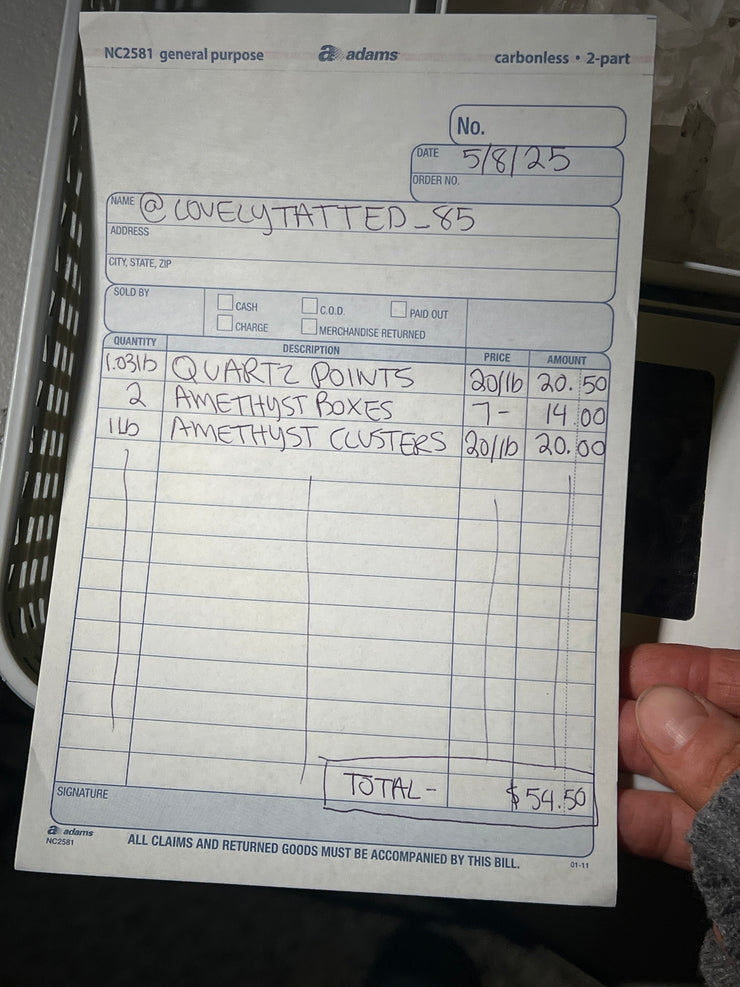 NC2581 general purpose a adams carbonless • 2-part
No.
DATE 5/8/25
ORDER NO.
NAME @LOVELYTATTED_85
ADDRESS
CITY, STATE, ZIP
SOLD BY CASH C.O.D. PAID OUT
CHARGE MERCHANDISE RETURNED
QUANTITY DESCRIPTION PRICE AMOUNT
1.03lb QUARTZ POINTS 20/lb 20.50
2 AMETHYST BOXES 7- 14.00
1 lb AMETHYST CLUSTERS 20/lb 20.00
TOTAL- $54.50
SIGNATURE
a adams
NC2581 ALL CLAIMS AND RETURNED GOODS MUST BE ACCOMPANIED BY THIS BILL. 01-11